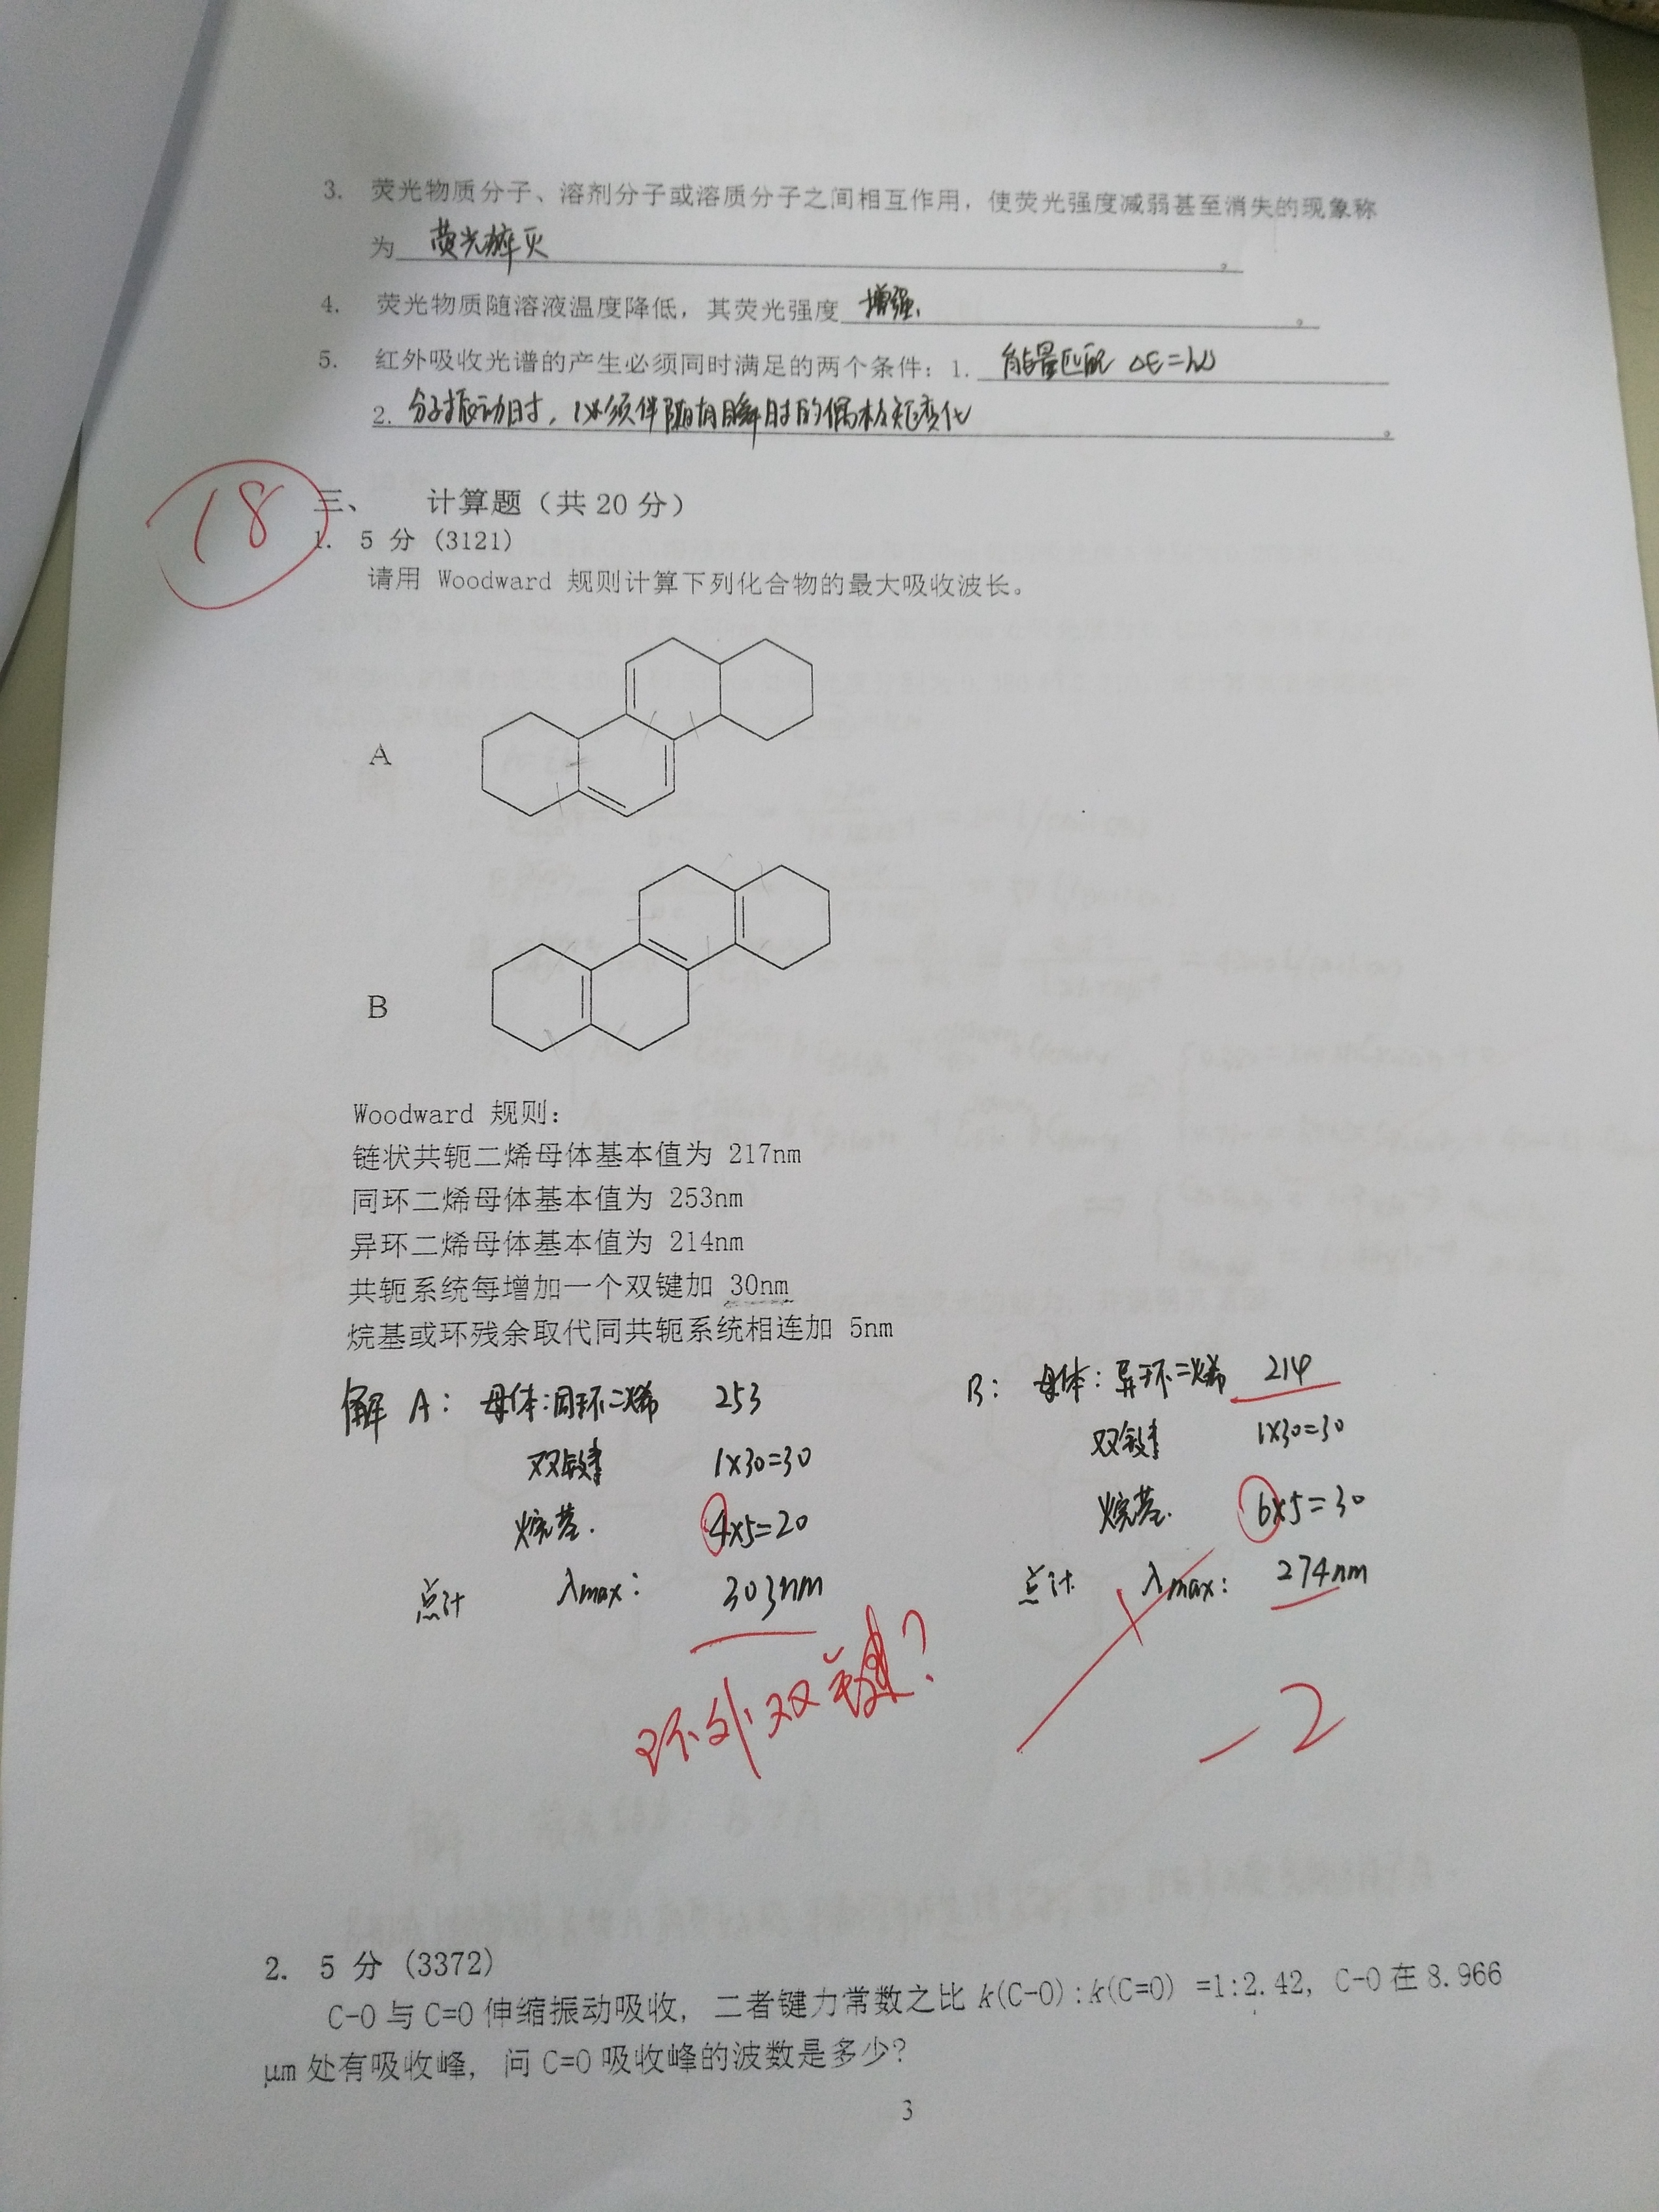 3. 荧光物质分子、溶剂分子或溶质分子之间相互作用，使荧光强度减弱甚至消失的现象称
为 荧光猝灭 。
4. 荧光物质随溶液温度降低，其荧光强度 增强. 。
5. 红外吸收光谱的产生必须同时满足的两个条件：1. 能量匹配 ΔE=hυ
2. 分子振动时，必须伴随有瞬时的偶极矩变化 。
18
三、 计算题（共 20 分）
1. 5 分 (3121)
请用 Woodward 规则计算下列化合物的最大吸收波长。
A
B
Woodward 规则：
链状共轭二烯母体基本值为 217nm
同环二烯母体基本值为 253nm
异环二烯母体基本值为 214nm
共轭系统每增加一个双键加 30nm
烷基或环残余取代同共轭系统相连加 5nm
解 A： 母体：同环二烯 253
双键 1×30=30
烷基. 4×5=20
总计 λmax： 303nm
B： 母体：异环二烯 214
双键 1×30=30
烷基. 6×5=30
总计 λmax： 274nm
环外双键？
-2
2. 5 分 (3372)
C-O 与 C=O 伸缩振动吸收，二者键力常数之比 k(C-O):k(C=O) =1:2.42，C-O 在 8.966
μm 处有吸收峰，问 C=O 吸收峰的波数是多少？
3